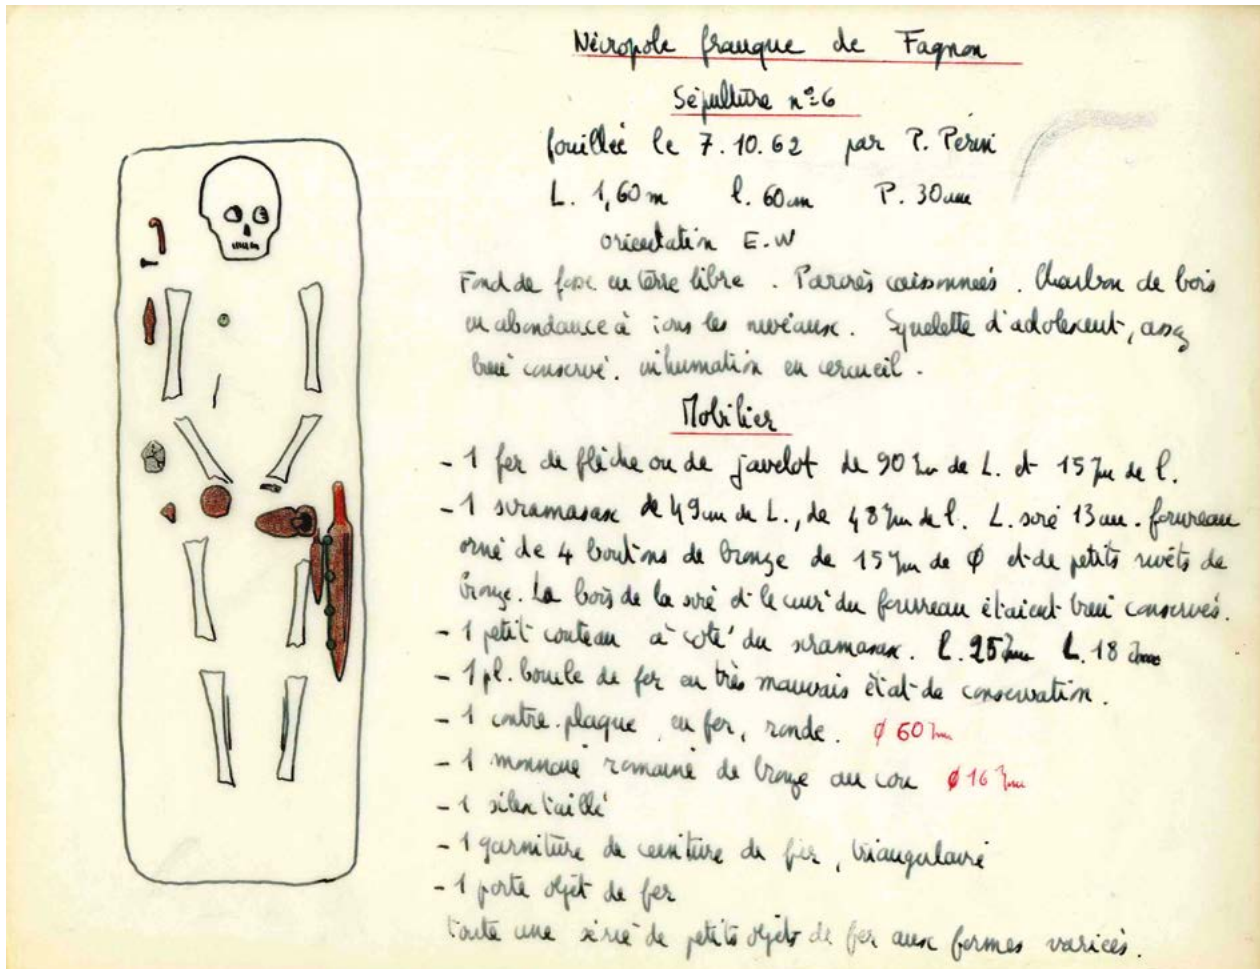 Nécropole franque de Fagnon
Sépulture n°6
fouillée le 7.10.62 par P. Périn
L. 1,60 m l. 60 cm P. 30 cm
orientation E.W
Fond de fosse en terre libre. Parois caissonnées. Charbon de bois
en abondance à tous les niveaux. Squelette d'adolescent, assez
bien conservé. inhumation en cercueil.
Mobilier
- 1 fer de flèche ou de javelot de 90 mm de L. et 15 mm de l.
- 1 scramasaxe de 49 cm de L., de 48 mm de l. L. soie 13 cm. fourreau
orné de 4 boutons de bronze de 15 mm de Ø et de petits rivets de
bronze. Le bois de la soie et le cuir du fourreau étaient bien conservés.
- 1 petit couteau à coté du scramasaxe. l. 25 mm L. 18
- 1 pl. boucle de fer en très mauvais état de conservation.
- 1 contre-plaque en fer, ronde. Ø 60 mm
- 1 monnaie romaine de bronze au cou Ø 16 mm
- 1 silex taillé
- 1 garniture de ceinture de fer, triangulaire
- 1 porte objet de fer
toute une série de petits objets de fer aux formes variées.